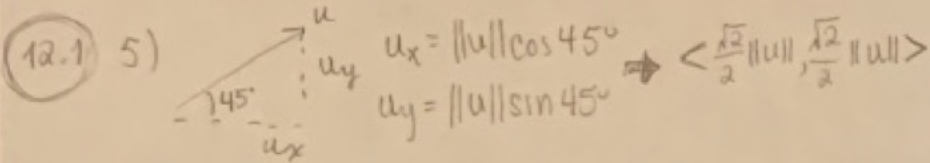 12.1 5)
u
u_y
45°
u_x
u_x = ||u||cos 45°
u_y = ||u||sin 45°
→ <√2/2 ||u||, √2/2 ||u||>